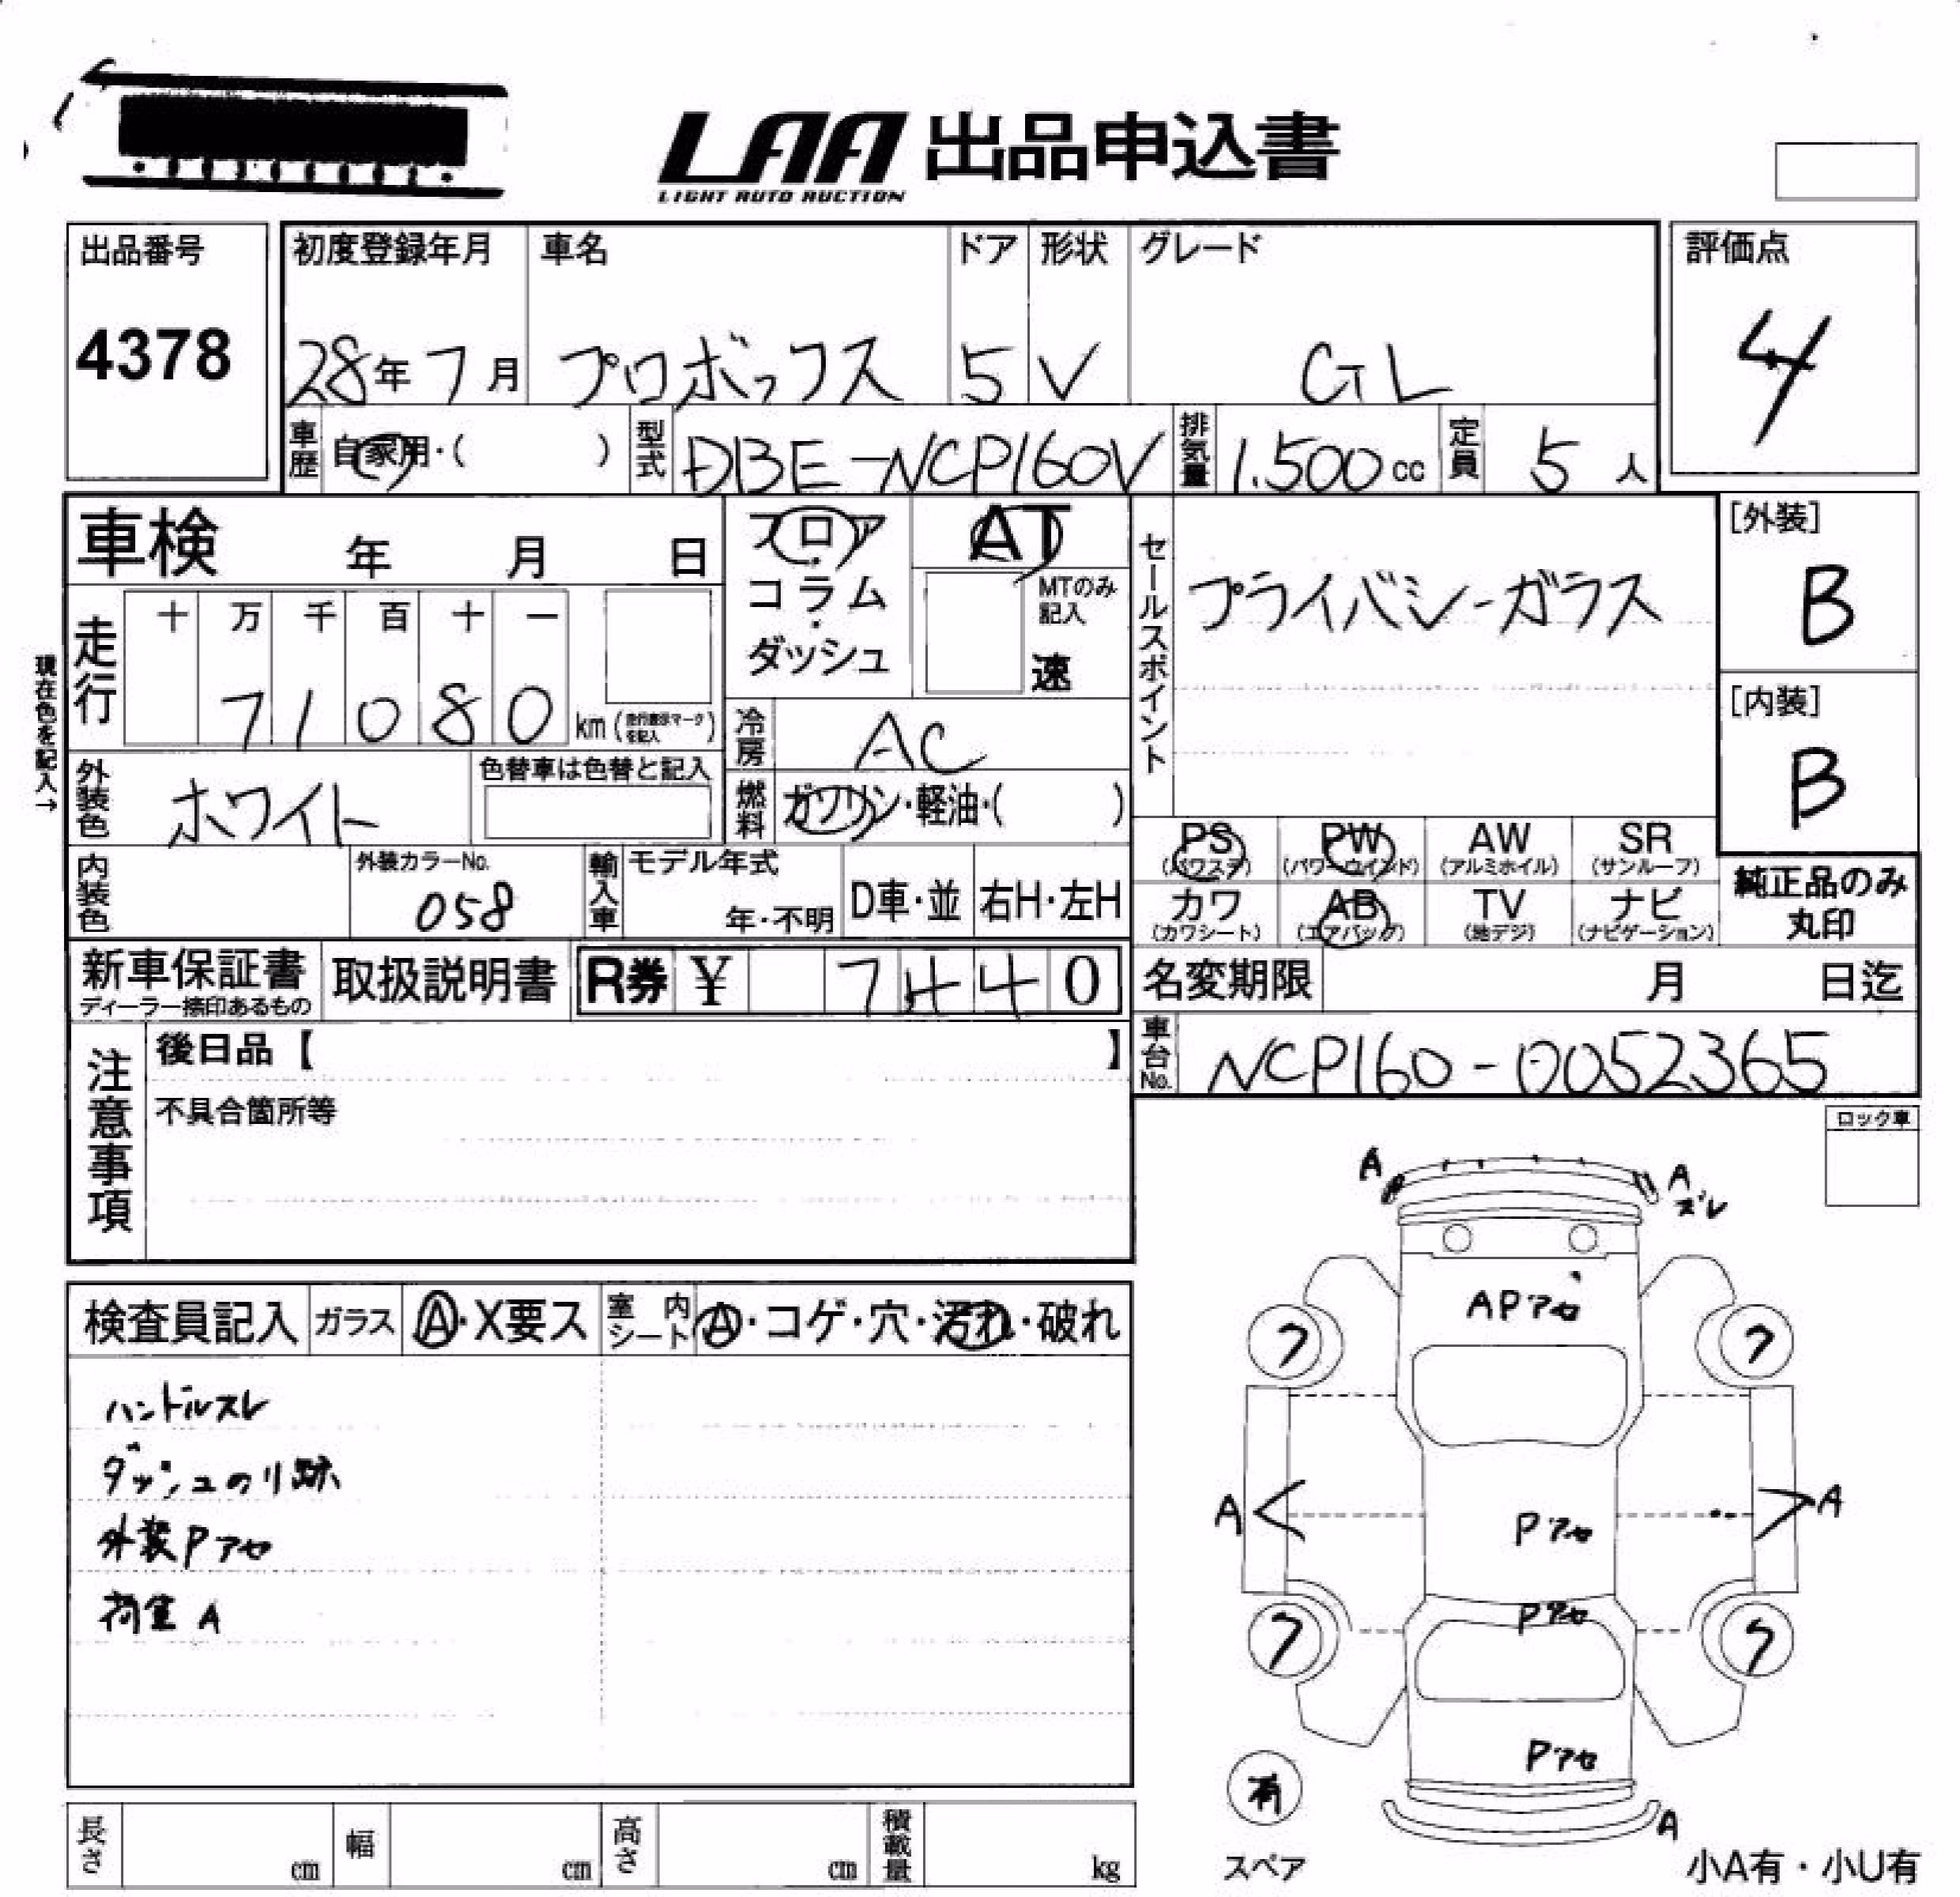 LAA 出品申込書
LIGHT AUTO AUCTION
出品番号 初度登録年月 車名 ドア 形状 グレード 評価点
4378 28年7月 プロボックス 5 V GL 4
車歴 自家用・( ) 型式 DBE-NCP160V 排気量 1.500cc 定員 5人
車検 年 月 日 フロア・コラム・ダッシュ AT
MTのみ記入 速
セールスポイント プライバシーガラス
[外装] B
[内装] B
現在色を記入→
走行 十 万 千 百 十 一
71080 km (走行表示マークを記入)
冷房 AC
外装色 ホワイト 色替車は色替と記入 燃料 ガソリン・軽油・( )
PS (パワステ) PW (パワーウインド) AW (アルミホイル) SR (サンルーフ)
カワ (カワシート) AB (エアバッグ) TV (地デジ) ナビ (ナビゲーション)
純正品のみ
丸印
内装色 外装カラーNo. 058 輸入車 モデル年式 年・不明 D車・並 右H・左H
新車保証書 取扱説明書 R券 ¥ 7440 名変期限 月 日迄
ディーラー捺印あるもの
車台No. NCP160-0052365
注意事項 後日品【 】
不具合箇所等
ロック車
A A
ズレ
検査員記入 ガラス A・X要ス 室内シート A・コゲ・穴・汚れ・破れ
APアセ
7 7
ハンドルスレ
ダッシュのリ跡
A A
外装Pアセ
Pアセ
荷室 A
Pアセ
7 7
Pアセ
有
スペア
A
長さ cm 幅 cm 高さ cm 積載量 kg
小A有・小U有